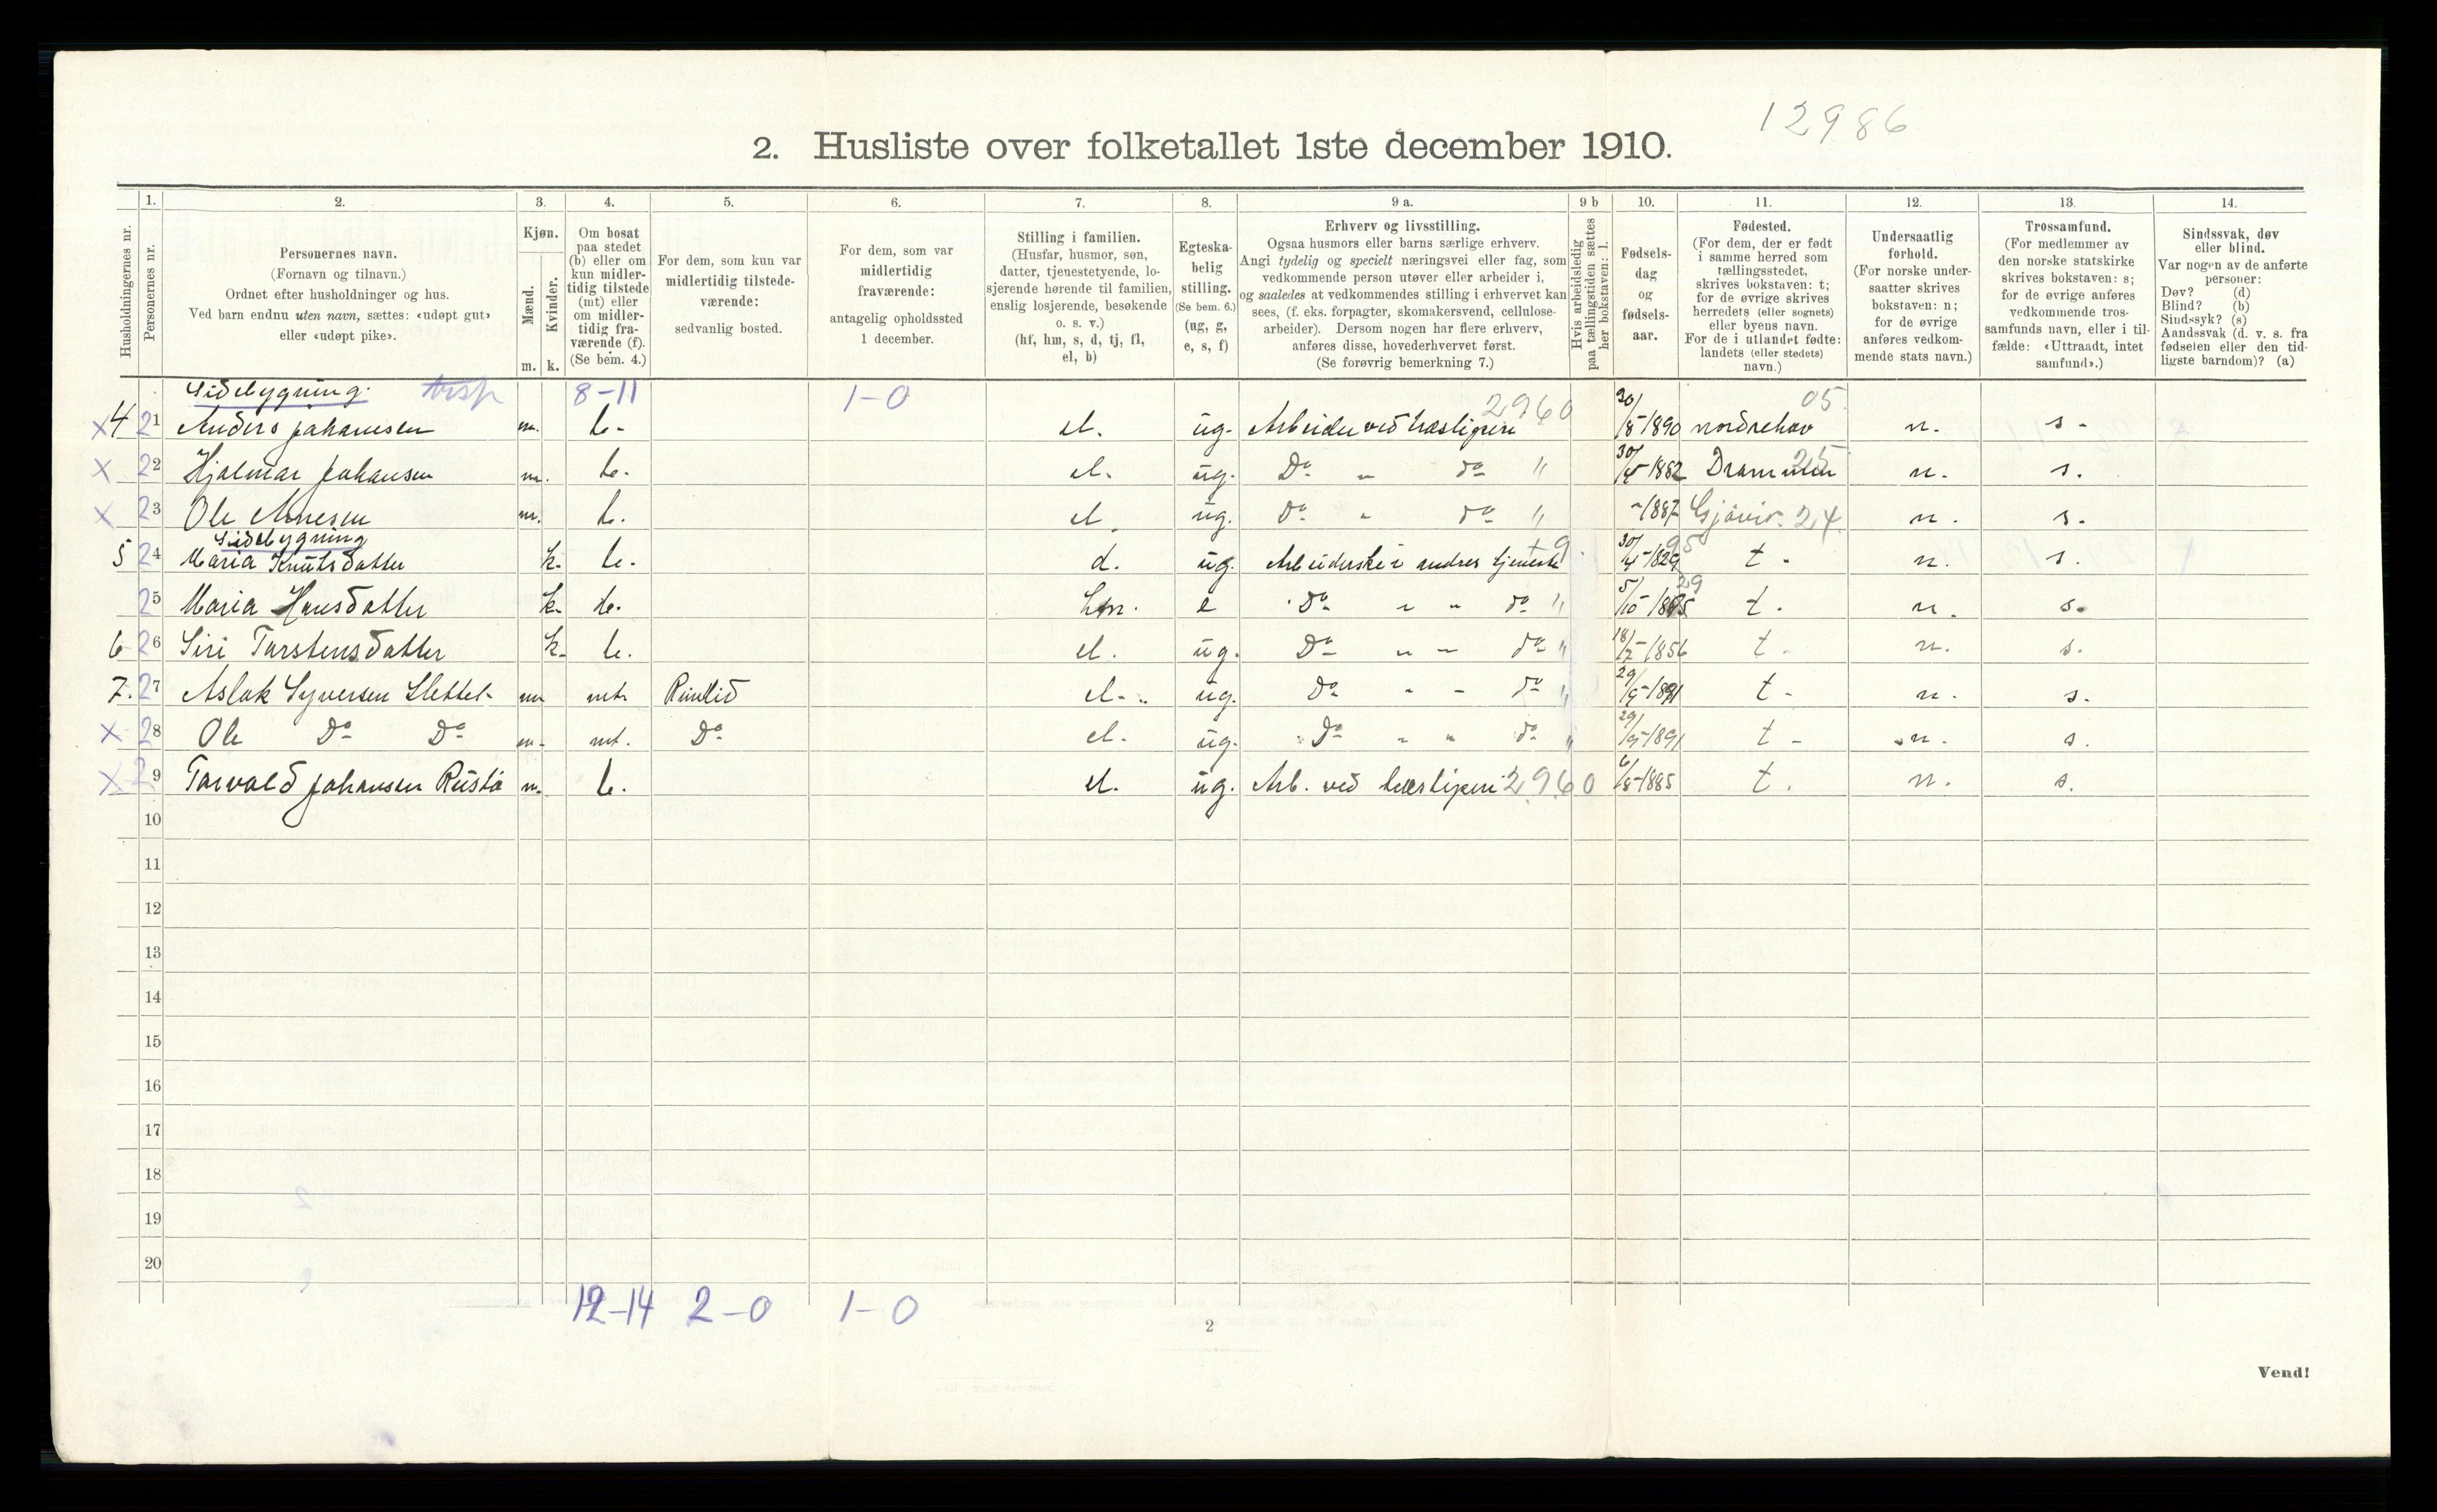 12986
2. Husliste over folketallet 1ste december 1910.
1. 2. 3. 4. 5. 6. 7. 8. 9 a. 9 b 10. 11. 12. 13. 14.
Husholdningernes nr.
Personernes nr.
Personernes navn.
(Fornavn og tilnavn.)
Ordnet efter husholdninger og hus.
Ved barn endnu uten navn, sættes: «udøpt gut»
eller «udøpt pike».
Kjøn.
Mænd.
Kvinder.
m. k.
Om bosat
paa stedet
(b) eller om
kun midler-
tidig tilstede
(mt) eller
om midler-
tidig fra-
værende (f).
(Se bem. 4.)
For dem, som kun var
midlertidig tilstede-
værende:
sedvanlig bosted.
For dem, som var
midlertidig
fraværende:
antagelig opholdssted
1 december.
Stilling i familien.
(Husfar, husmor, søn,
datter, tjenestetyende, lo-
sjerende hørende til familien,
enslig losjerende, besøkende
o. s. v.)
(hf, hm, s, d, tj, fl,
el, b)
Egteska-
belig
stilling.
(Se bem. 6.)
(ug, g,
e, s, f)
Erhverv og livsstilling.
Ogsaa husmors eller barns særlige erhverv.
Angi tydelig og specielt næringsvei eller fag, som
vedkommende person utøver eller arbeider i,
og saaledes at vedkommendes stilling i erhvervet kan
sees, (f. eks. forpagter, skomakersvend, cellulose-
arbeider). Dersom nogen har flere erhverv,
anføres disse, hovederhvervet først.
(Se forøvrig bemerkning 7.)
Hvis arbeidsledig
paa tællingstiden sættes
her bokstaven: l.
Fødsels-
dag
og
fødsels-
aar.
Fødested.
(For dem, der er født
i samme herred som
tællingsstedet,
skrives bokstaven: t;
for de øvrige skrives
herredets (eller sognets)
eller byens navn.
For de i utlandet fødte:
landets (eller stedets)
navn.)
Undersaatlig
forhold.
(For norske under-
saatter skrives
bokstaven: n;
for de øvrige
anføres vedkom-
mende stats navn.)
Trossamfund.
(For medlemmer av
den norske statskirke
skrives bokstaven: s;
for de øvrige anføres
vedkommende tros-
samfunds navn, eller i til-
fælde: «Uttraadt, intet
samfund».)
Sindssvak, døv
eller blind.
Var nogen av de anførte
personer:
Døv? (d)
Blind? (b)
Sindssyk? (s)
Aandssvak (d. v. s. fra
fødselen eller den tid-
ligste barndom)? (a)
Sidebygning. 8-11 1-0 2960 05
x 4 21 Anders Johansen m. b. el. ug. Arbeider ved træsliperi 1890 nordrehov n. s.
x 22 Hjalmar Johansen m. b. el. ug. Do " do " 30/ 1882 Drammen 25 n. s.
x 23 Ole Arnesen m. b. el. ug. Do " do " -1887 Gjøvik. 24 n. s.
Sidebygning
5 24 Maria Knutsdatter k. b. d. ug. Arbeiderske i andres tjeneste 30/4-1829 t. n. s.
25 Maria Hansdatter k. b. hm. e Do " " do " 5/10 t. n. s.
6 26 Siri Torstensdatter k. b. el. ug. Do " " do " 18/7-1856 t. n. s.
7. 27 Aslak Syversen Slettet m mt. el. ug. Do " " do " 29/9-1891 t. n. s.
x 28 Ole Do Do m. mt. Do el. ug. Do " " do " 29/9-1891 t. n. s.
x 29 Torvald Johansen m. b. el. ug. Arb. ved træsliperi 2960 6/8-1885 t. n. s.
10
11
12
13
14
15
16
17
18
19
20
12-14 2-0 1-0
2
Vend!